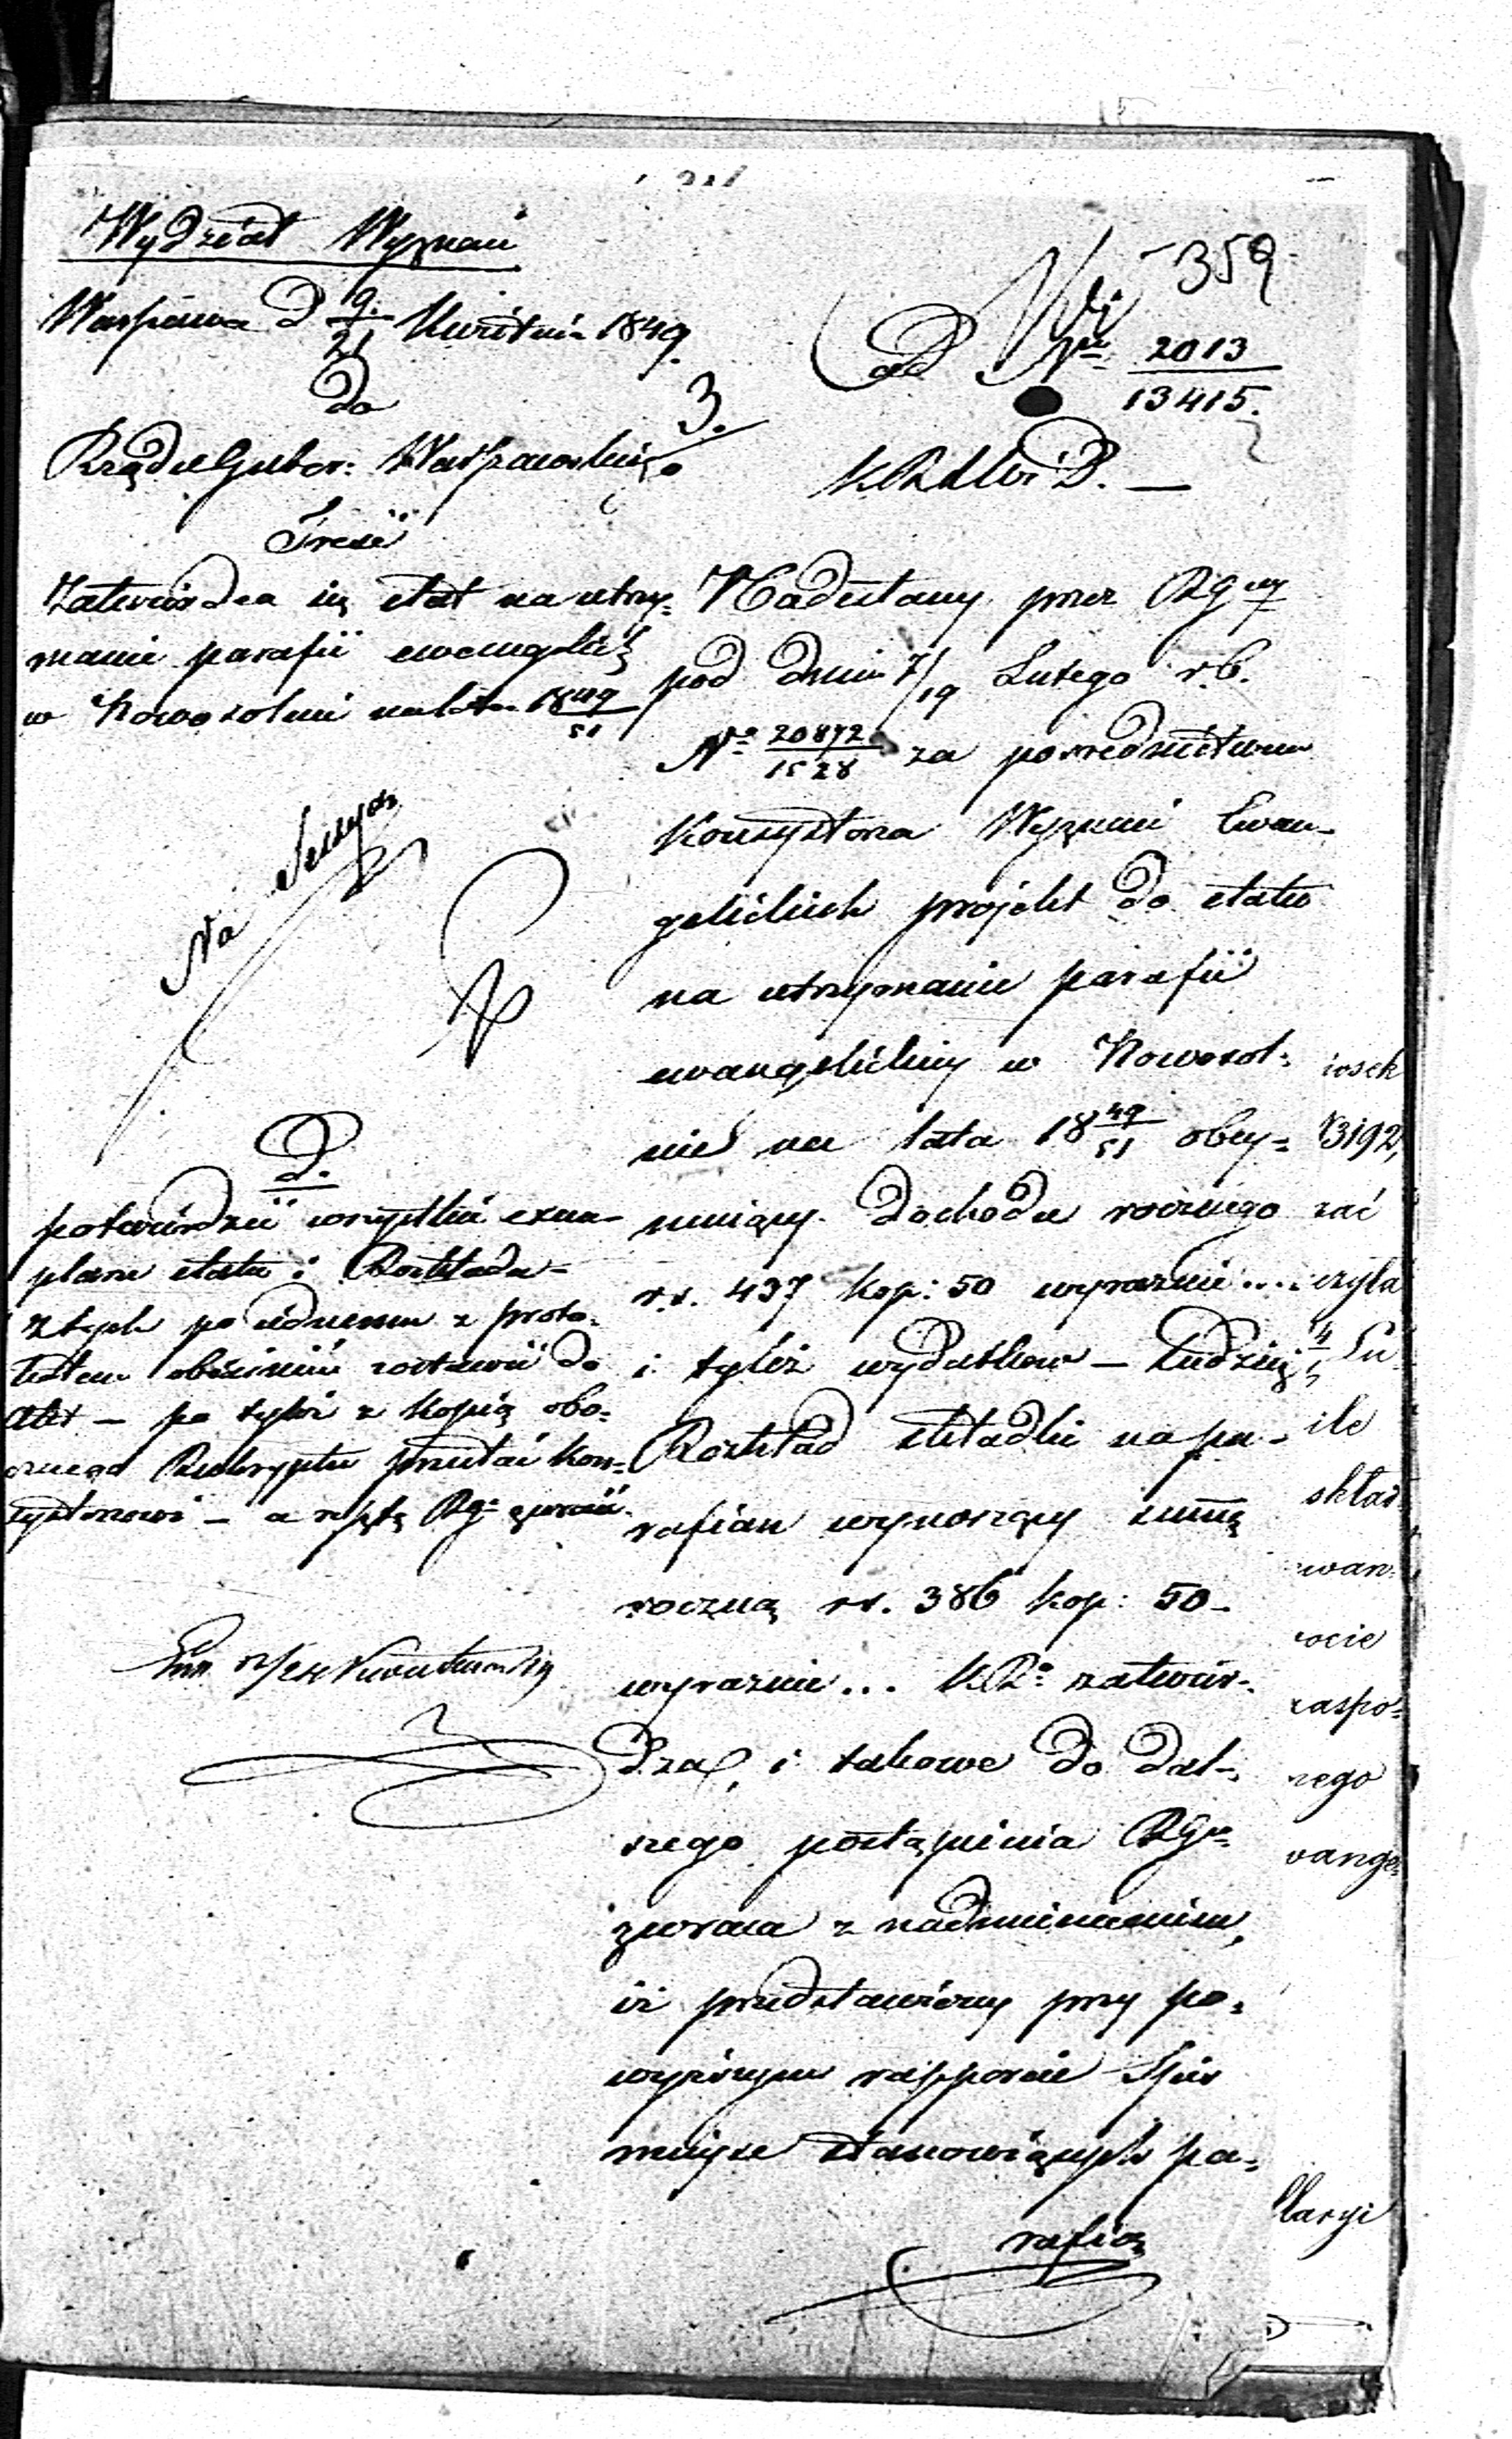 Wydział Wyznań
Warszawa d 9/21 Kwietnia 1849
do
Rządu Guber: Warszawskiego
3.
359
ad No 2013/13415.
Treść
Zatwierdza się etat na utrzy=
manie parafii ewangelic:
w Nowosolnie na lata 1849/51
Na Sessyą
D.
potwierdzić wszystkie exem=
plarze etatu i Rozkładu
z tych po iednemu z proto=
zostawić do
Akt — po tyluż z kopią obo=
cznego Reskryptu przesłać Kon=
systorzowi — a resztę RG. zwrócić.
Nadesłany przez RG wy
pod dniem 7/19 Lutego r.b.
No 20872/1528 za pośrednictwem
Konsystorza Wyznań Ewan=
gelickich projekt do etatu
na utrzymanie parafii
ewangelickiej w Nowosol=
nie na lata 18 49/51 obej=
mujący dochodu rocznego
r.s. 437 kop: 50 wyraznie....
i tyleż wydatków — tudzież
Rozkład składki na pa=
rafian wynoszący summę
roczną rs. 386 kop: 50 —
wyraznie... KR. zatwier=
dza, i takowe do dal=
szego postąpienia RG
zwraca z nadmienieniem,
iż przedstawiony przy po=
wyższym rapporcie Spis
miejsc stanowiących pa=
rafią
iosek
3192,
zać
czyła
Lu
ile
skład
ewan
ocie
zaspo=
nego
wange=
llaryi